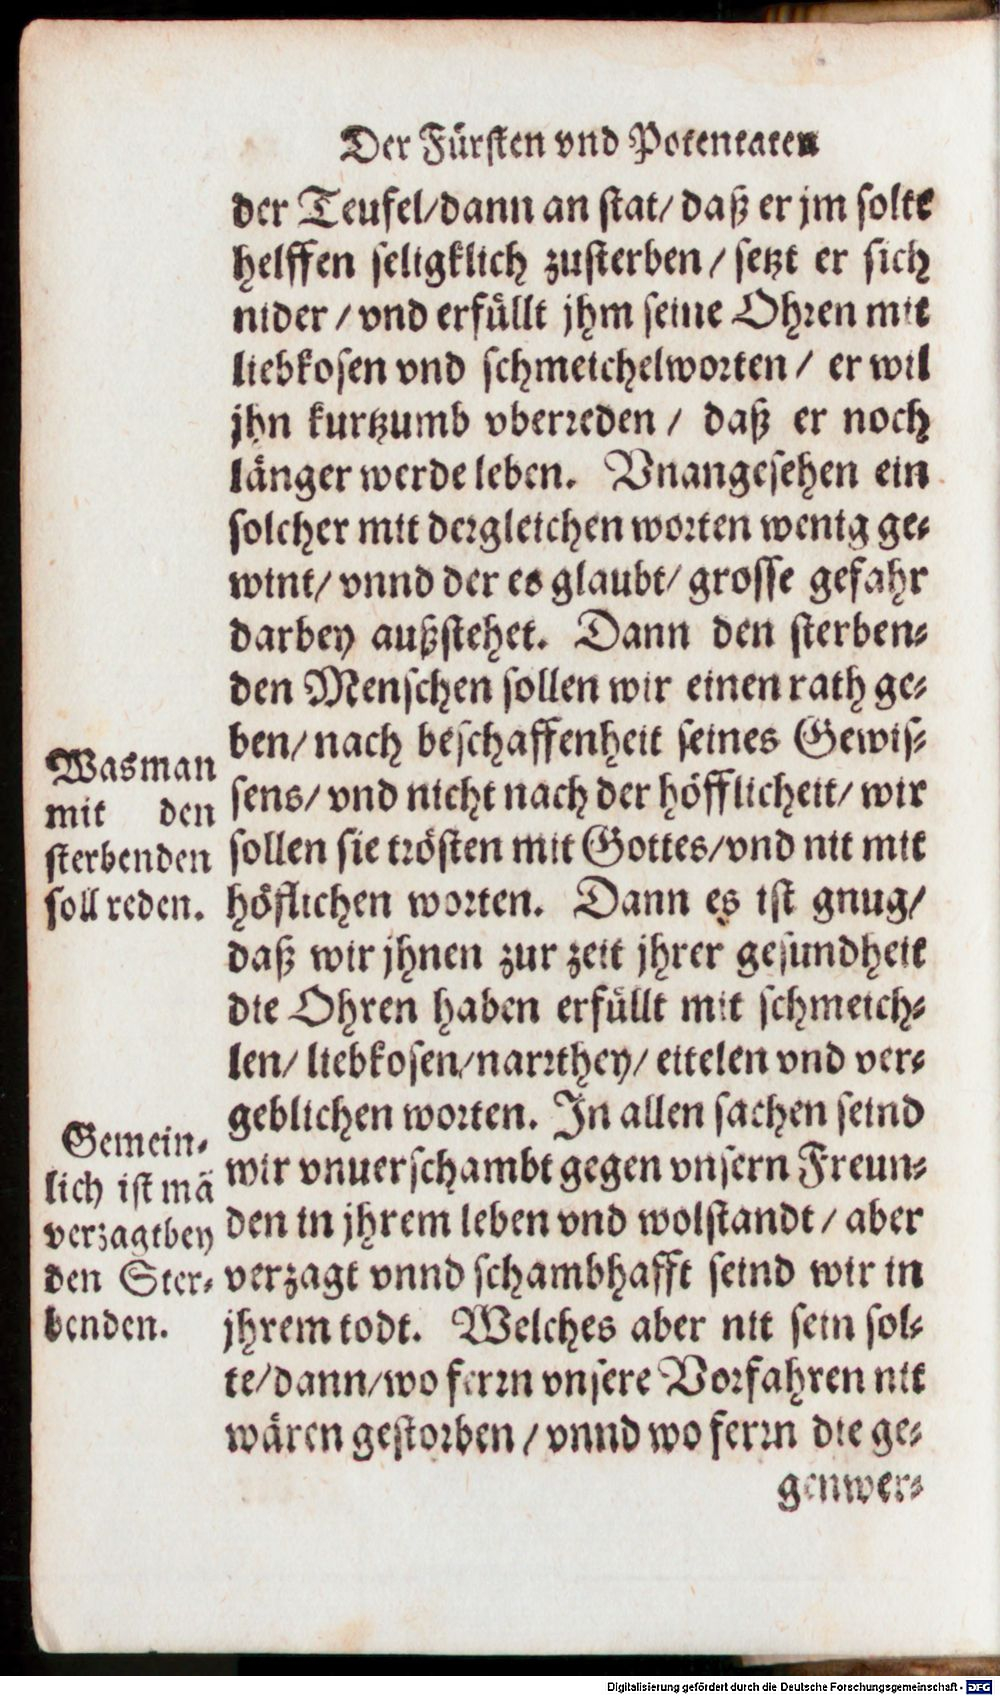 Der Fürsten vnd Potentaten
der Teufel/dann an stat/ daß er jm solte
helffen seligklich zusterben / setzt er sich
nider / vnd erfüllt jhm seine Ohren mit
liebkosen vnd schmeichelworten / er wil
jhn kurtzumb vberreden / daß er noch
länger werde leben. Vnangesehen ein
solcher mit dergleichen worten wenig ge-
wint/ vnnd der es glaubt/ grosse gefahr
darbey außstehet. Dann den sterben-
den Menschen sollen wir einen rath ge-
ben/ nach beschaffenheit seines Gewis-
sens/ vnd nicht nach der höfflicheit/ wir
sollen sie trösten mit Gottes/vnd nit mit
höflichen worten. Dann es ist gnug/
daß wir jhnen zur zeit jhrer gesundheit
die Ohren haben erfüllt mit schmeich-
len/ liebkosen/narrthey/ eitelen vnd ver-
geblichen worten. In allen sachen seind
wir vnuerschambt gegen vnsern Freun-
den in jhrem leben vnd wolstandt / aber
verzagt vnnd schambhafft seind wir in
jhrem todt. Welches aber nit sein sol-
te/dann/wo ferrn vnsere Vorfahren nit
wären gestorben / vnnd wo ferrn die ge-
genwer-
Was man
mit den
sterbenden
soll reden.
Gemein-
lich ist mã
verzagt bey
den Ster-
benden.
Digitalisierung gefördert durch die Deutsche Forschungsgemeinschaft - DFG